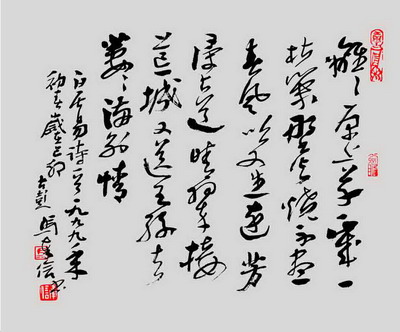 離々原上草一歲一
枯榮野火燒不盡
春風吹又生遠芳
侵古道晴翠接
荒城又送王孫去
萋々滿別情
白居易詩一首一九九九年
歲在己卯古彭馬